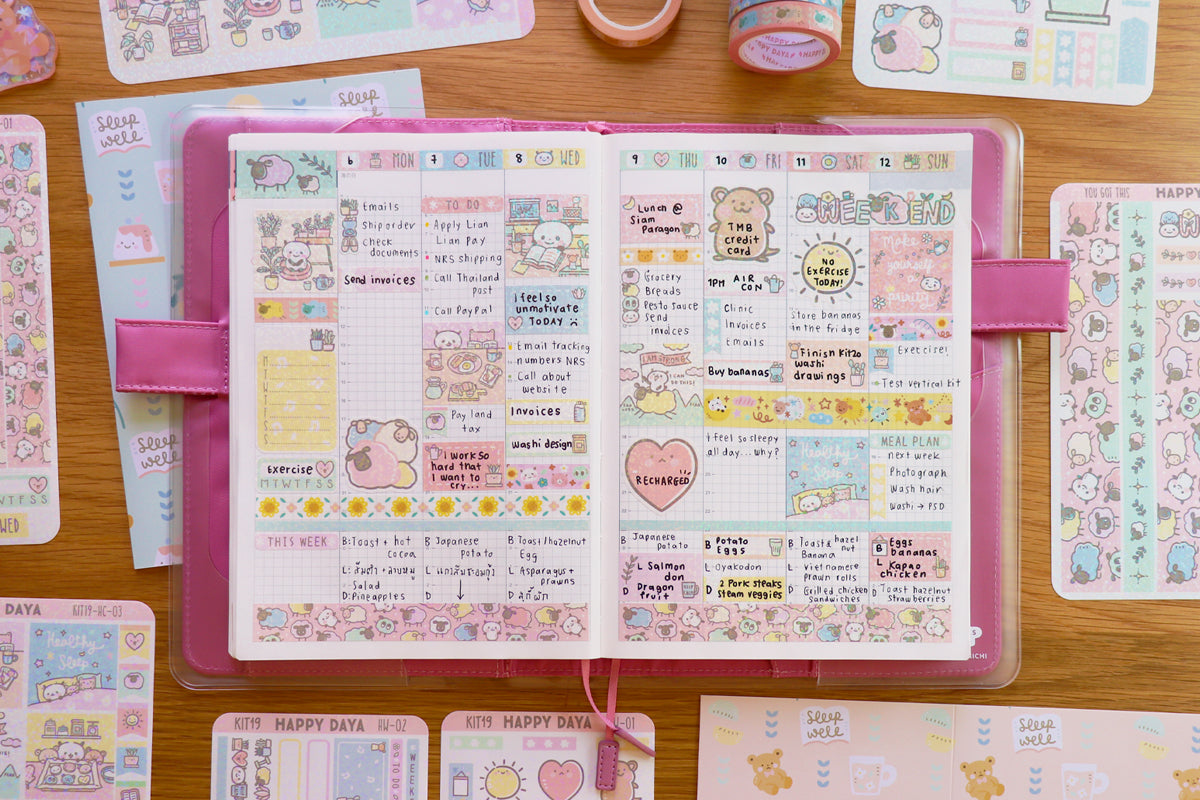 sleep
well
sleep
well
HAPPY DAYA
-01
6 MON
7 TUE
8 WED
9 THU
10 FRI
11 SAT
12 SUN
Emails
Ship order
Check
documents
Send invoices
TO DO
Apply Lian
Lian Pay
NRS shipping
Call Thailand
post
Call PayPal
Pay land
tax
I work so
hard that
I want to
cry...
I feel so
unmotivate
TODAY
Email tracking
numbers NRS
Call about
website
Invoices
washi design
Lunch @
Siam
Paragon
Grocery
Breads
Pesto sauce
Send
invoices
I AM STRONG
I CAN
DO THIS!
RECHARGED
TMB
credit
card
1PM AIR
CON
Clinic
Invoices
Emails
Buy bananas
I feel so sleepy
all day... why?
WEEKEND
NO
EXERCISE
TODAY!
Store bananas
in the fridge
Finish Kit20
washi
drawings
Healthy
Sleep
Make
yourself
a
priority
Exercise!
Test vertical kit
MEAL PLAN
next week
Photograph
Wash hair
Washi → PSD
M
T
W
T
F
S
S
Exercise
MTWTFSS
THIS WEEK
B: Toast + hot
cocoa
L: ส้มตำ + ลาบหมู
Salad
D: Pineapples
B Japanese
potato
L แกงส้มชะอมกุ้ง
D ↓
B: Toast/hazelnut
Egg
L Asparagus +
prawns
D สุกี้ผัก
B Japanese
Potato
L Salmon
don
D Dragon
fruit
B Potato
Eggs
L Oyakodon
D 2 Pork steaks
steam veggies
B Toast & hazel
nut
Banana
L Vietnamese
prawn rolls
D Grilled chicken
sandwiches
B Eggs
bananas
L Kapao
chicken
D Toast hazelnut
strawberries
YOU GOT THIS HAPP
MTWTFSS
WED
DAYA KIT19-HC-03
Healthy
Sleep
KIT19 HAPPY DAYA HW-02
TO DO
WEEK
KIT19 HAPPY DAYA -01
sleep
well
sleep
well